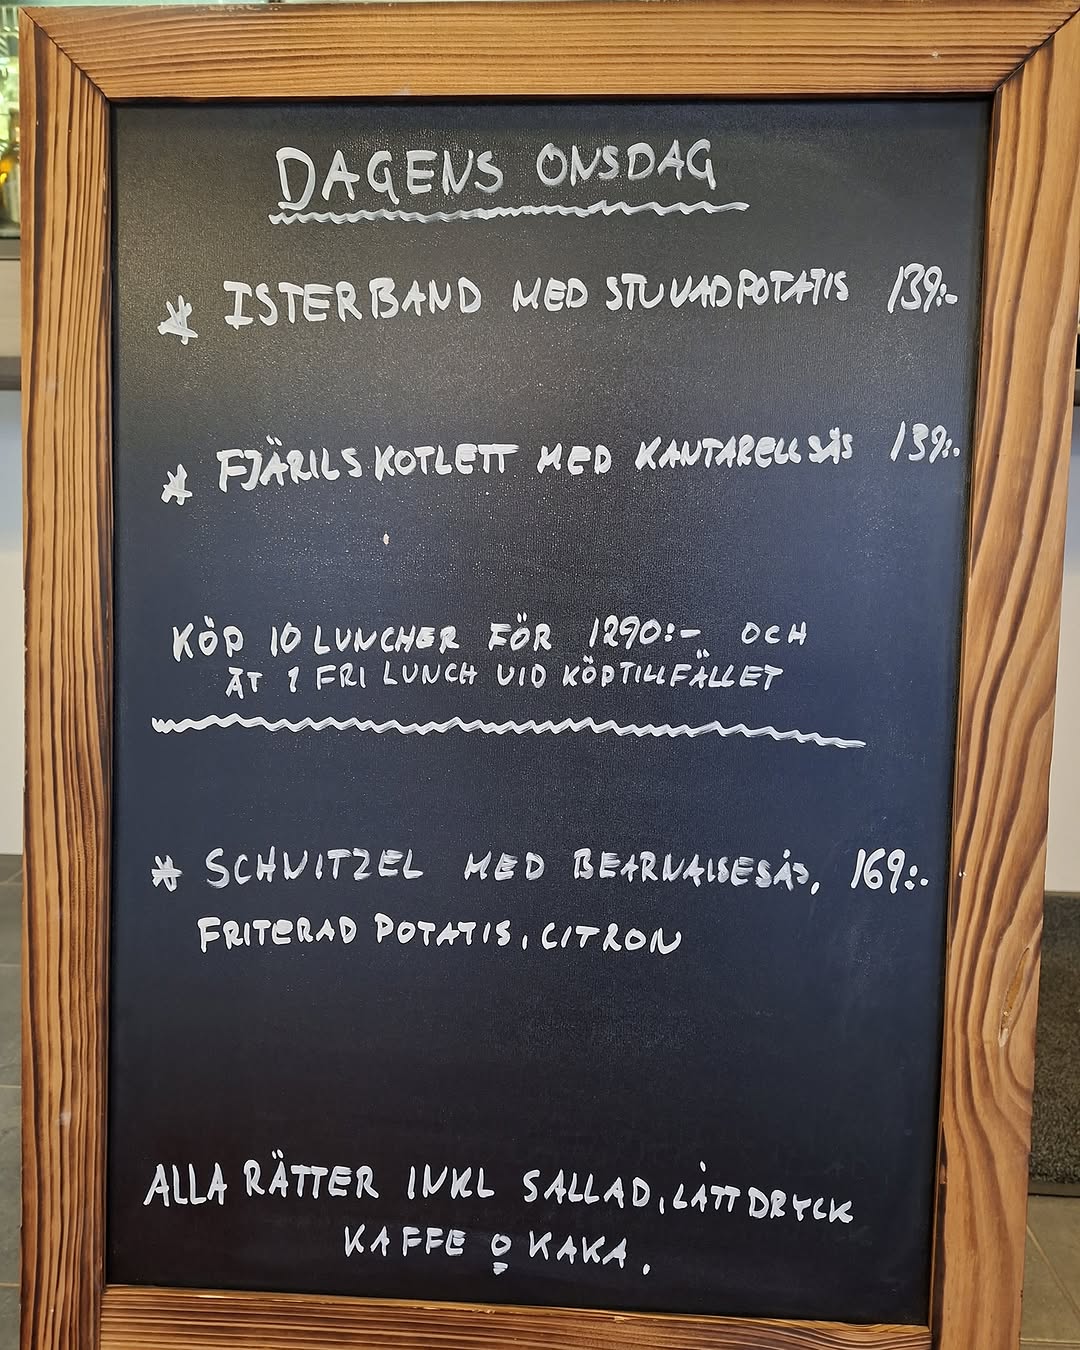 DAGENS ONSDAG
* ISTERBAND MED STUVAD POTATIS 139:-
* FJÄRILSKOTLETT MED KANTARELLSÅS 139:-
KÖP 10 LUNCHER FÖR 1290:- OCH
ÄT 1 FRI LUNCH VID KÖPTILLFÄLLET
* SCHNITZEL MED BEARNAISESÅS, 169:-
FRITERAD POTATIS, CITRON
ALLA RÄTTER INKL SALLAD, LÄTTDRYCK
KAFFE O KAKA.